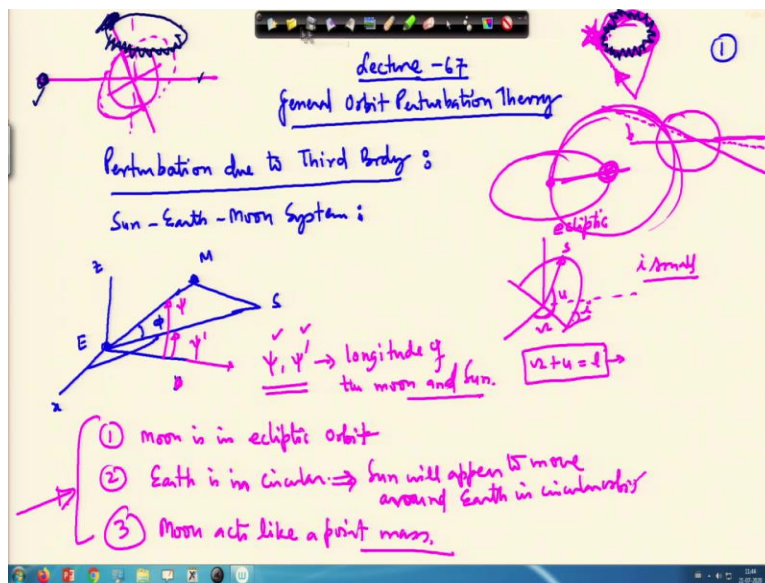 ①
Lecture - 67
General Orbit Perturbation Theory
Perturbation due to Third Body :
Sun - Earth - Moon System :
ecliptic
Z
M
S
E
φ
ψ
ψ'
x
S
u
i
Ω
i small
ψ, ψ' → longitude of
the moon and Sun.
Ω + u = l →
① Moon is in ecliptic orbit
② Earth is in circular ⇒ Sun will appear to move
around Earth in circular orbit
③ Moon acts like a point mass.
11:44
21-07-2020